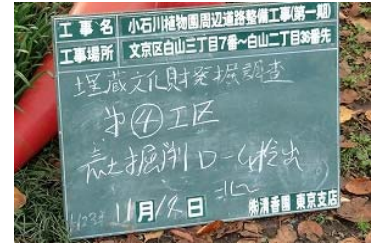 工事名 小石川植物園周辺道路整備工事(第一期)
工事場所 文京区白山三丁目7番～白山二丁目36番先
埋蔵文化財発掘調査
第④工区
表土掘削ローム検出
北
11月 日 ㈱清香園 東京支店